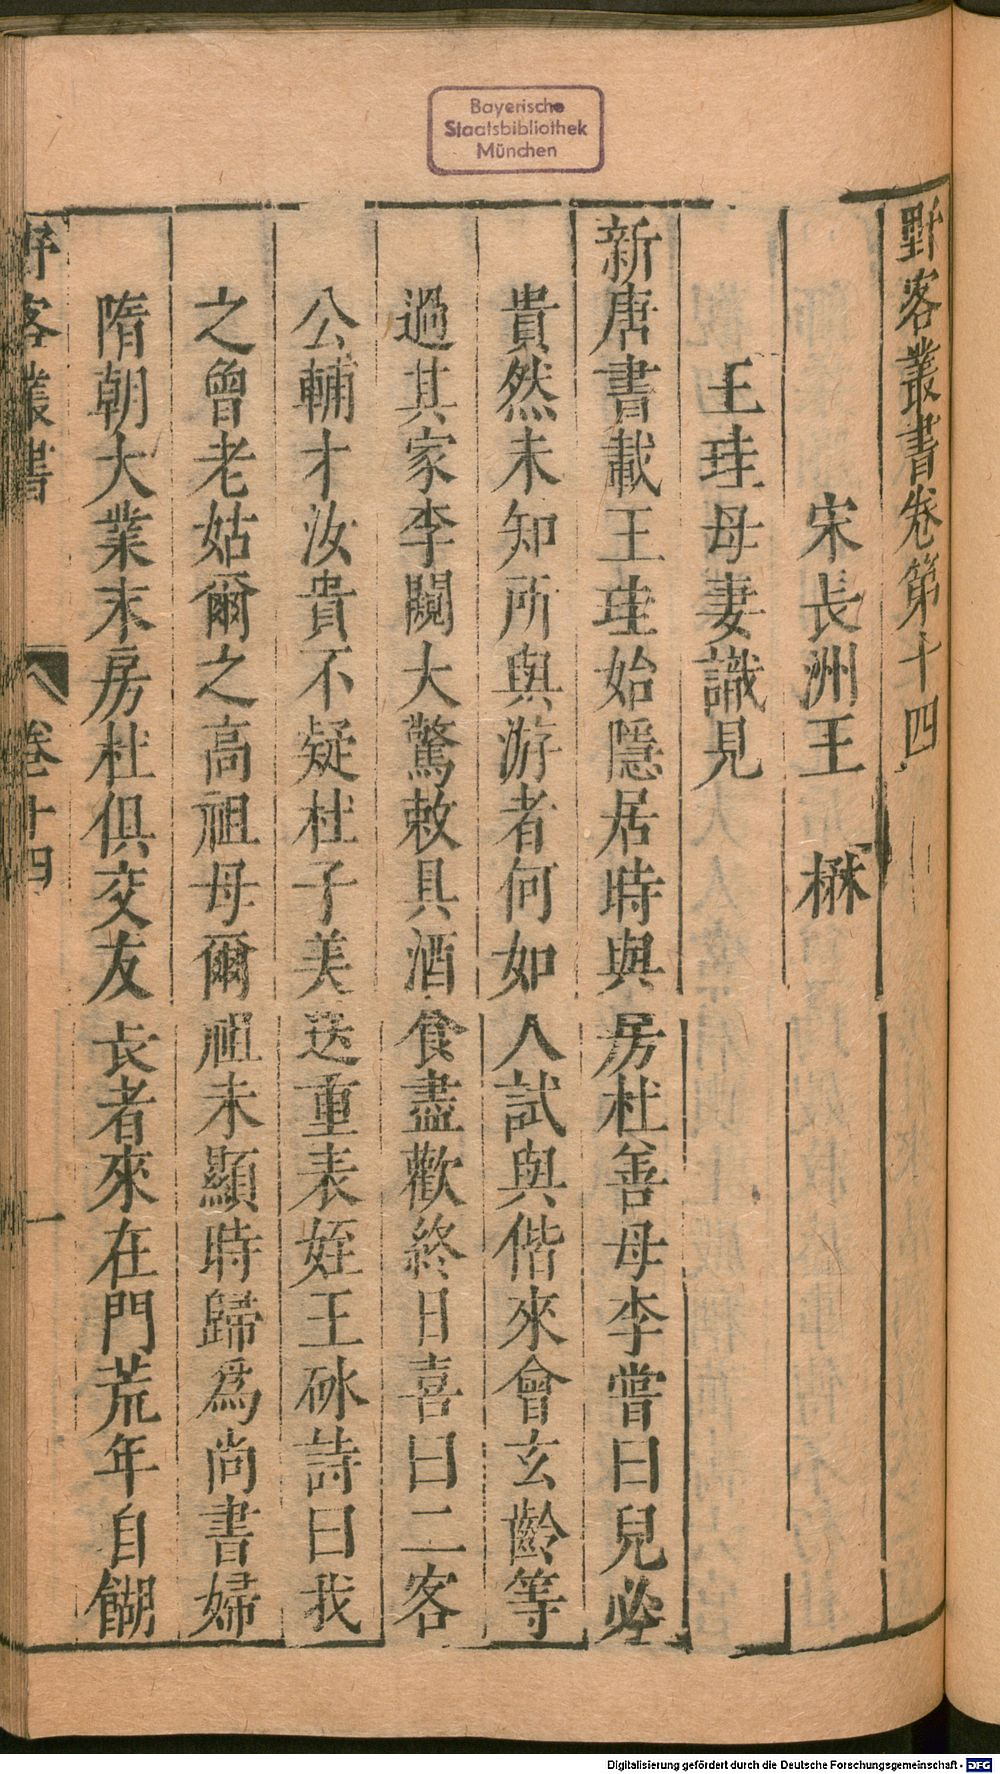 Bayerische
Staatsbibliothek
München
野客叢書卷第十四
宋長洲王 楙
王珪母妻識見
新唐書載王珪始隱居時與房杜善母李嘗曰兒必
貴然未知所與游者何如人試與偕來會玄齡等
過其家李闚大驚敕具酒食盡歡終日喜曰二客
公輔才汝貴不疑杜子美送重表姪王砅詩曰我
之曾老姑爾之高祖母爾祖未顯時歸爲尚書婦
隋朝大業末房杜俱交友長者來在門荒年自餬
野客叢書 卷十四 一
Digitalisierung gefördert durch die Deutsche Forschungsgemeinschaft - DFG